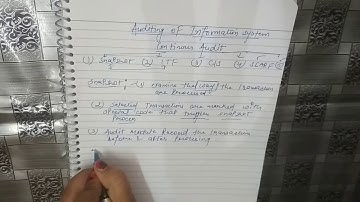 Auditing of Information System
Continous Audit
(1) Snapshot (2) ITF (3) CIS (4) SCARF
Snapshot: (1) Examine the way the transactions
are processed
(2) Selected Transactions are marked with
special code that triggers snapshot
Process
(3) Audit module Record the transactions
before & after Processing